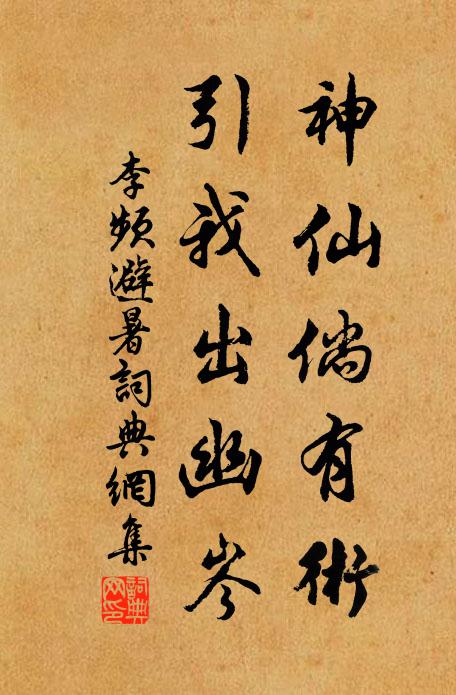 神仙倘有術
引我出幽岑
李頻避暑詞典網集
詞典
网印